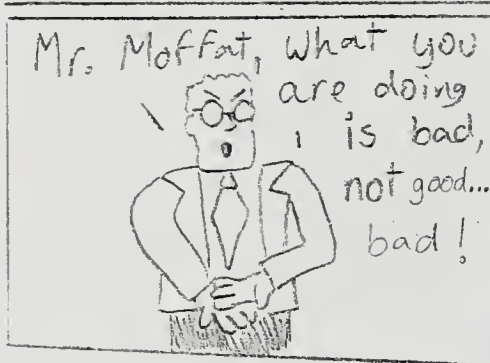 Mr. Moffat, what you
are doing
is bad,
not good...
bad!